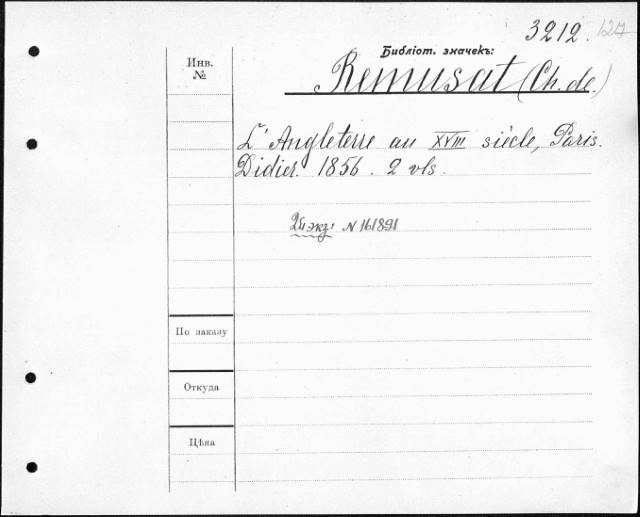 3212. 127
Библіот. значекъ:
Инв.
№
Remusat (Ch. de.)
L'Angleterre au XVIII siècle, Paris.
Didier. 1856. 2 vls.
2й экз: N 161891
По заказу
Откуда
Цѣна